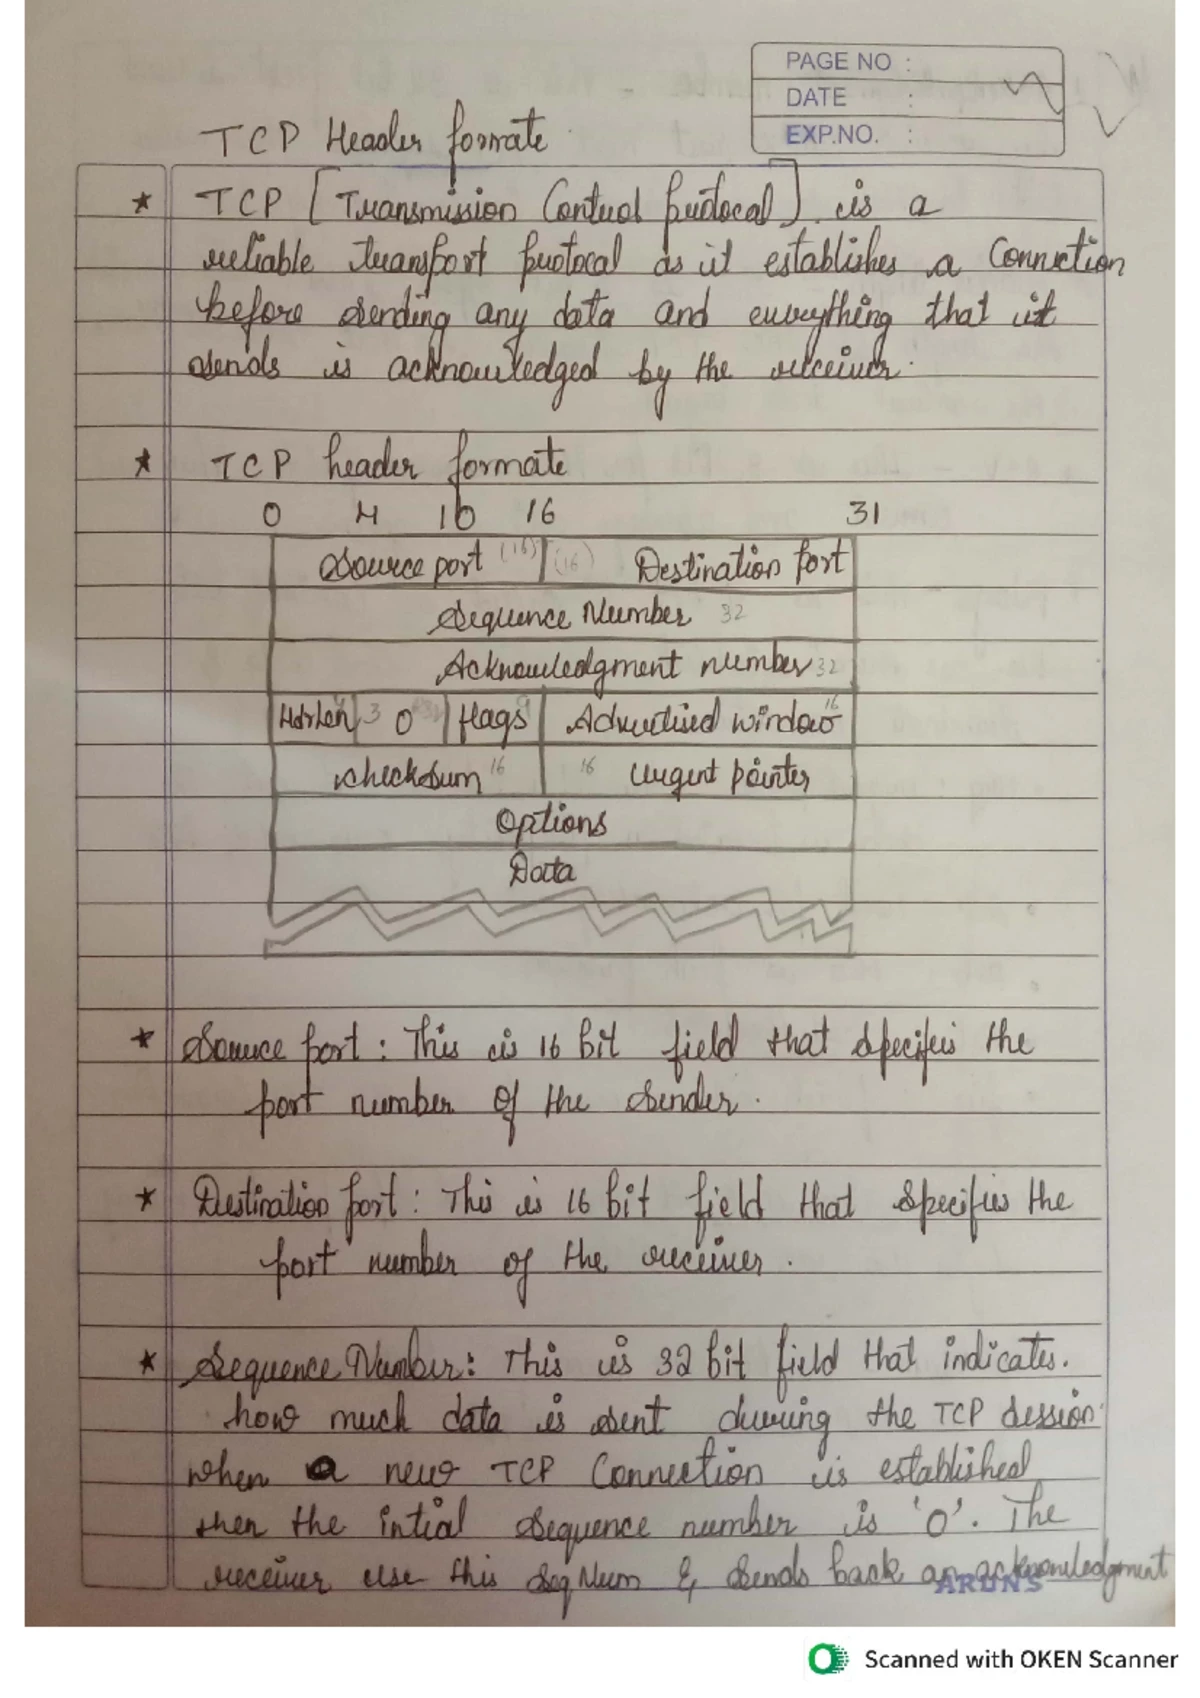 PAGE NO :
DATE :
EXP.NO. :
TCP Header formate
* TCP [Transmission Control protocal] is a
reliable transport protocal as it establishes a Connction
before sending any data and everything that it
sends is acknowledged by the receiver.
* TCP header formate
0 4 10 16 31
Source port (16) (16) Destination port
Sequence Number 32
Acknowledgment number 32
HdrLen 3 0 flags 9 Advertised window 16
checksum 16 16 Urgent pointer
Options
Data
* Source port : This is 16 bit field that specifies the
port number of the sender.
* Destination port : This is 16 bit field that specifies the
port number of the receiver.
* Sequence Number : This is 32 bit field that indicates.
how much data is sent during the TCP session.
when a new TCP Connection is established
then the intial sequence number is '0'. The
receiver use this Seq Num & sends back an acknowledgment
ARUNS
Scanned with OKEN Scanner